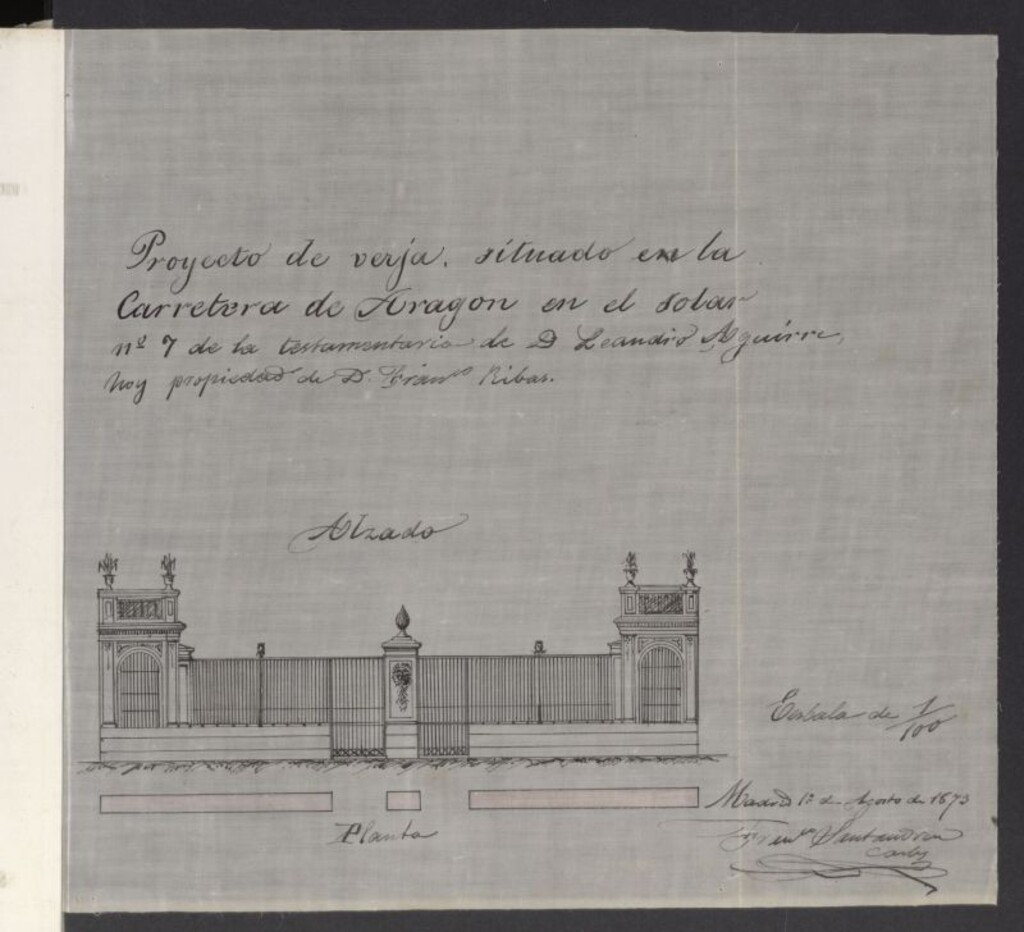 Proyecto de verja. situado en la
Carretera de Aragon en el solar
nº 7 de la testamentaria de D Leandro Aguirre,
hoy propiedad de D. Franco Ribas.
Alzado
Escala de 1/100
Madrid 1º de Agosto de 1873
Planta